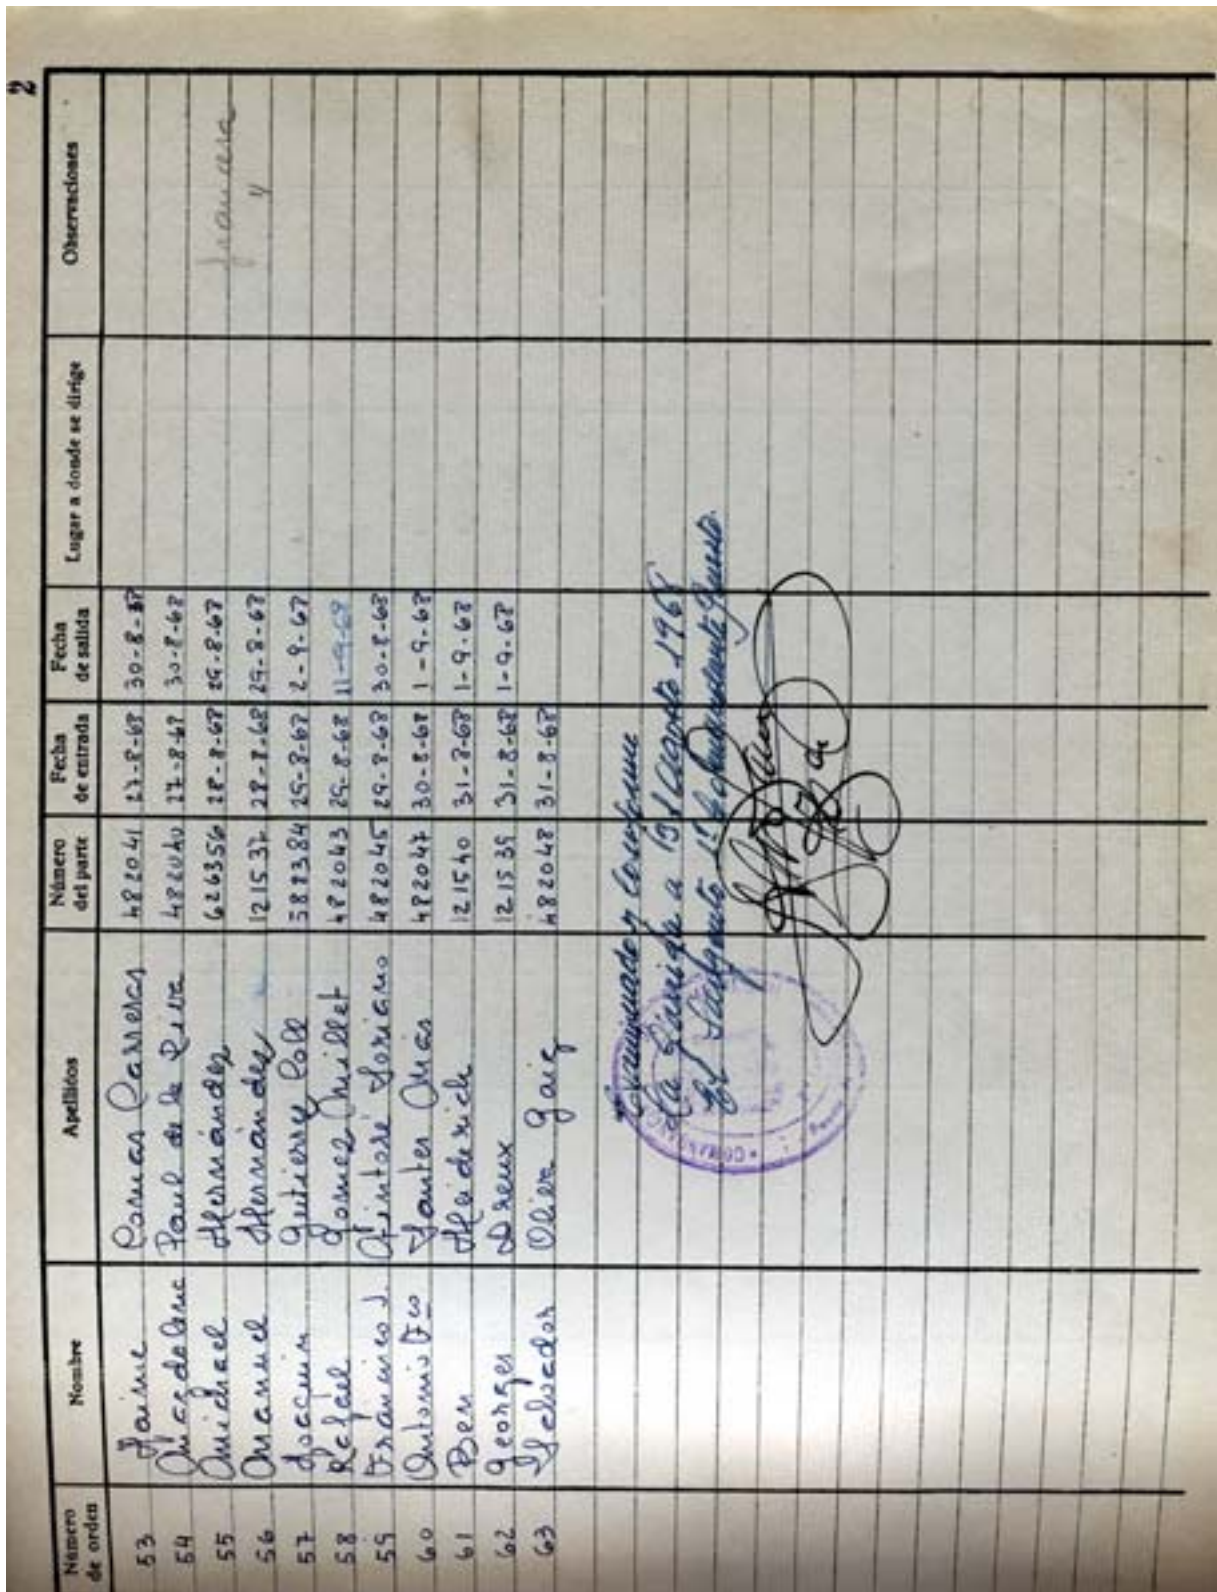 2
Número de orden Nombre Apellidos Número del parte Fecha de entrada Fecha de salida Lugar a donde se dirige Observaciones
53 Jaime Comas Carreras 482041 27-8-68 30-8-68
54 Magdalena Paul de la Riva 482040 27-8-68 30-8-68
55 Michael Hernández 626356 28-8-68 29-8-68
56 Manuel Hernández 121537 28-8-68 29-8-68
57 Joaquin Gutierrez Coll 582384 29-8-68 2-9-68
58 Rafael Gomez Millet 482043 29-8-68 11-9-68
59 Francisco J. Soriano 482045 29-8-68 30-8-68
60 Antonio Fco 482047 30-8-68 1-9-68
61 Ben Heiderich 121540 31-8-68 1-9-68
62 Georges Dreux 121539 31-8-68 1-9-68
63 Salvador Oliva Gaig 482048 31-8-68
francesa
Examinado y Conforme
La Garriga a 31 Agosto 1968
El Sargento 1º Comandante Puesto.